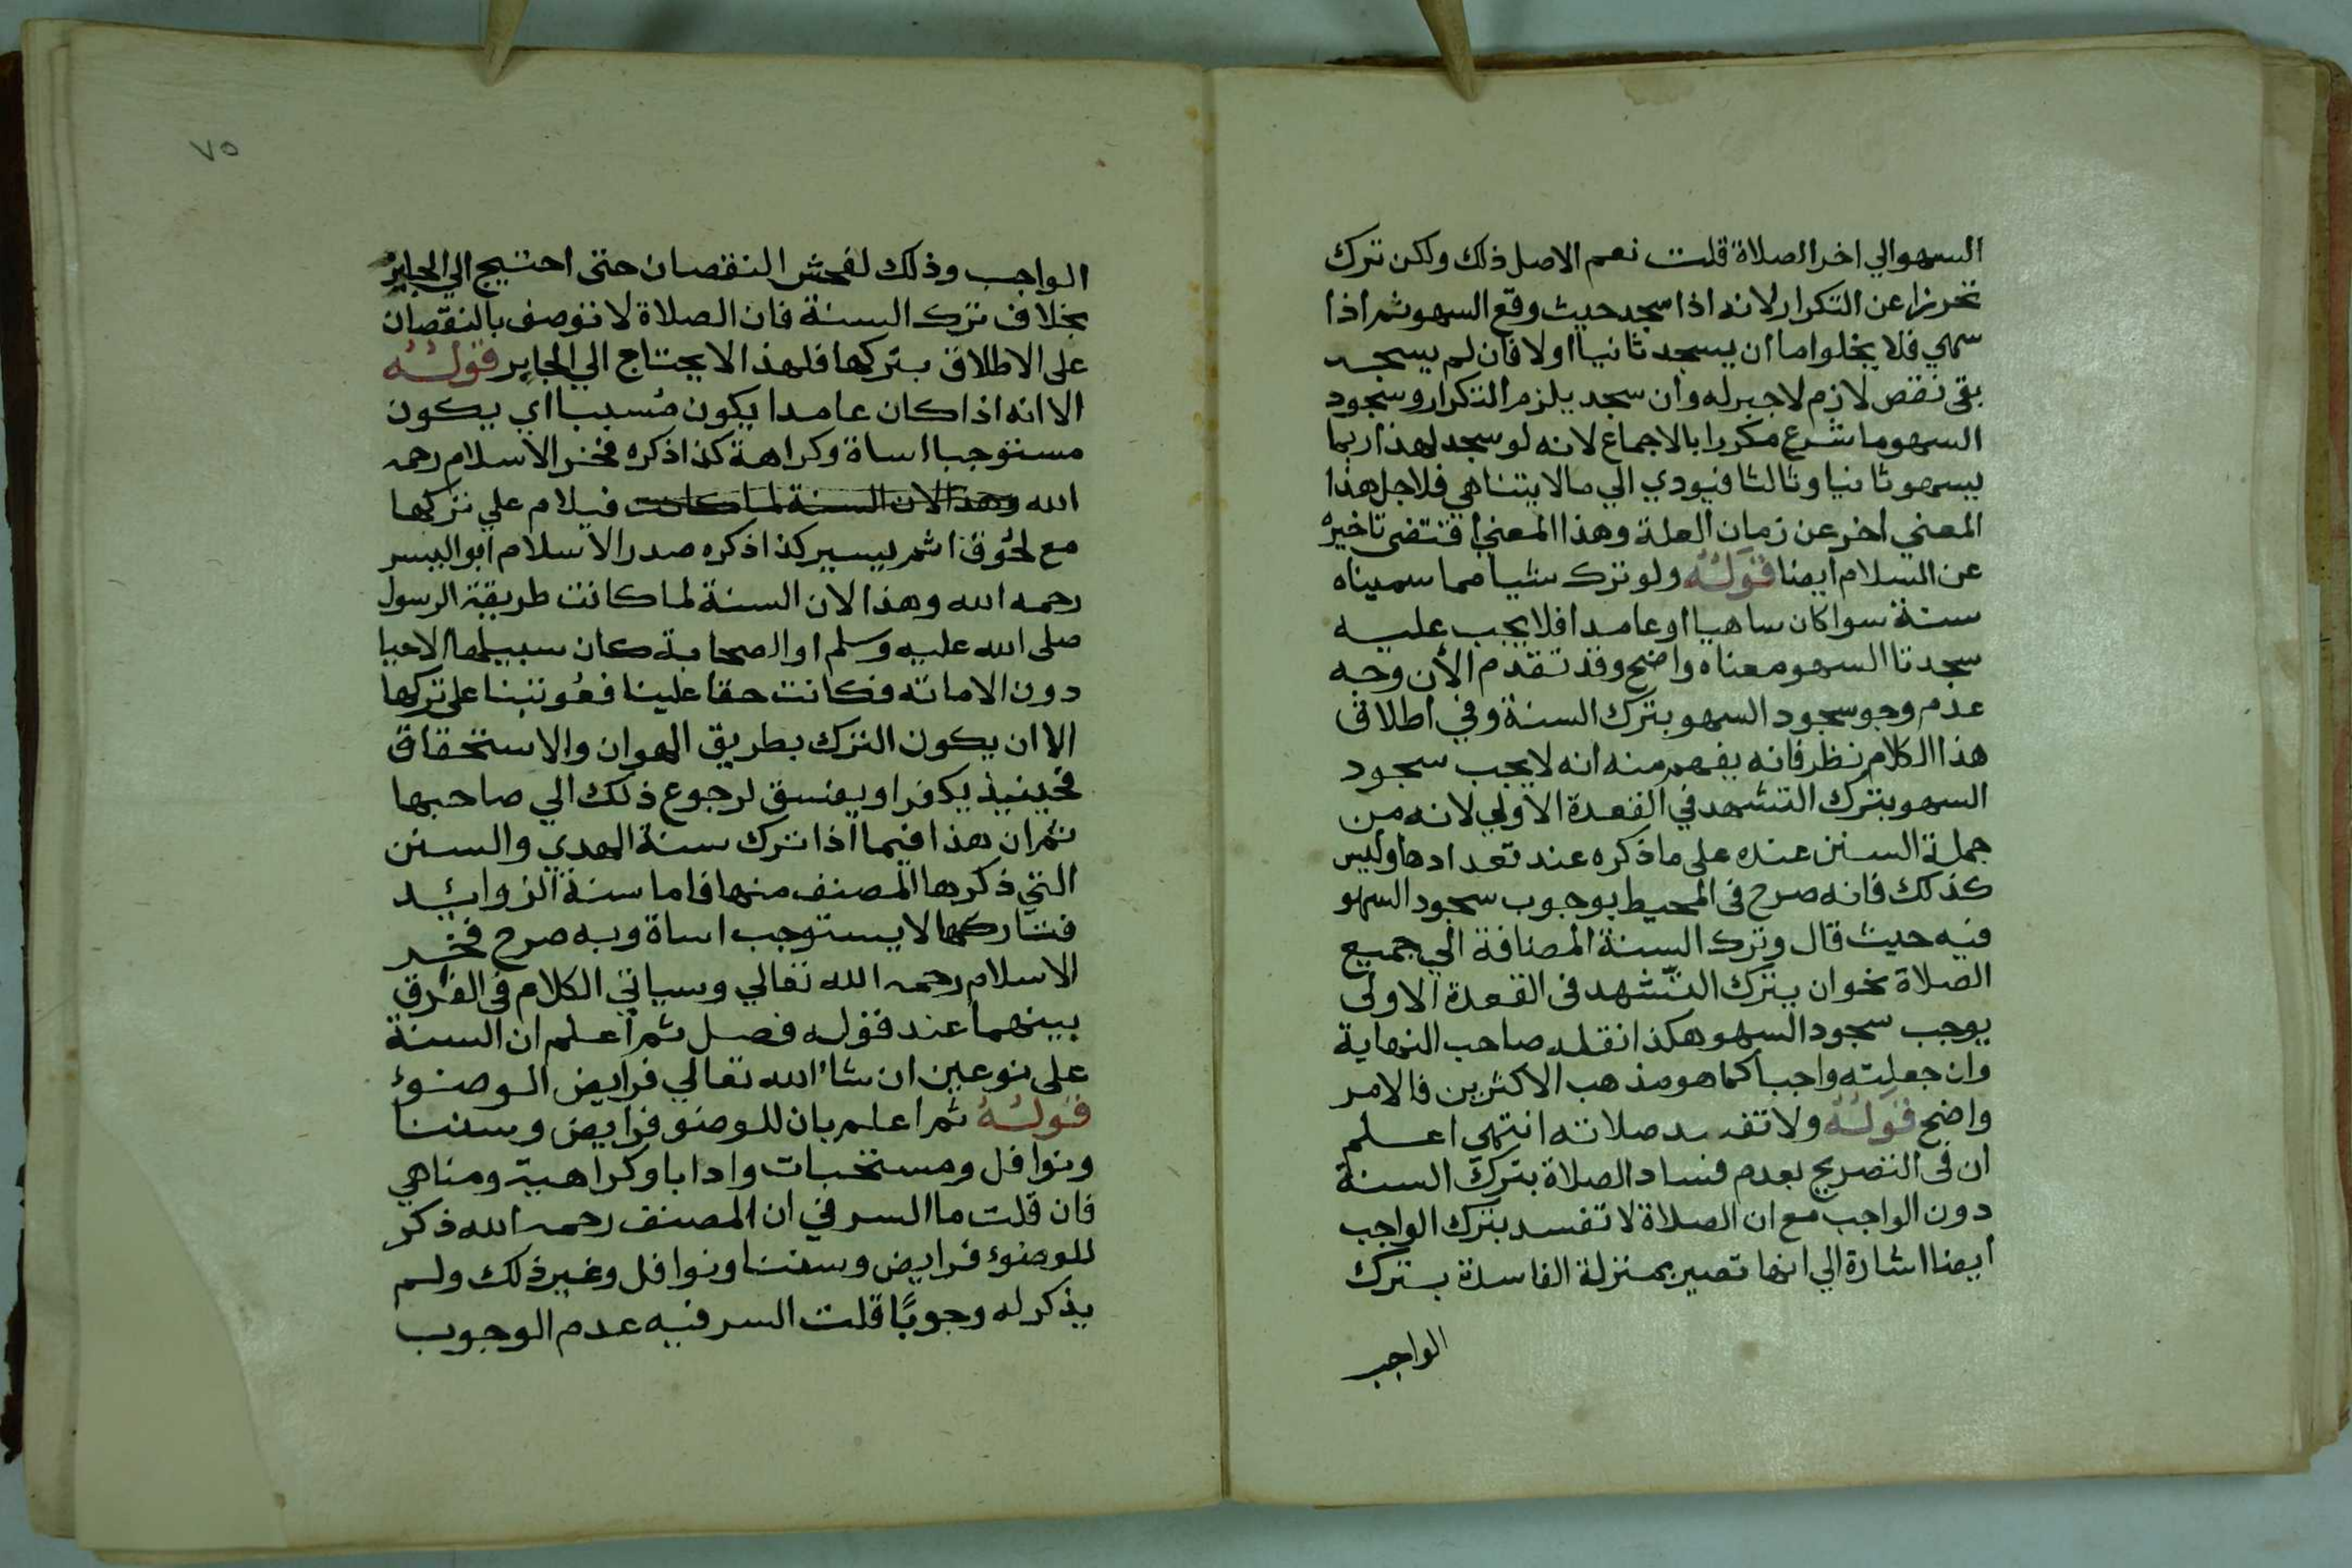 السهو الي اخر الصلاة قلت نعم الاصل ذلك ولكن ترك
تحرزا عن التكرار لانه اذا سجد حيث وقع السهو ثم اذا
سهي فلا يخلوا ما ان يسجد ثانيا او لا فان لم يسجد
بقى نقص لازم لا جبر له وان سجد يلزم التكرار وسجود
السهو ما شرع مكررا بالاجماع لانه لو سجد لهذا ربما
يسهو ثانيا وثالثا فيودي الي مالا يتناهي فلاجل هذا
المعني اخر عن زمان العلة وهذا المعني اقتضى تاخيره
عن السلام ايضا قوله ولو ترك شيا مما سميناه
سنة سوا كان ساهيا او عامدا فلا يجب عليه
سجدتا السهو معناه واضح وقد تقدم الان وجه
عدم وجو سجود السهو بترك السنة وفي اطلاق
هذا الكلام نظر فانه يفهم منه انه لا يجب سجود
السهو بترك التشهد في القعدة الاولي لانه من
جملة السنن عنده على ما ذكره عند تعدادها وليس
كذلك فانه صرح فى المحيط بوجوب سجود السهو
فيه حيث قال وترك السنة المضافة الي جميع
الصلاة نحو ان يترك التّشهد فى القعدة الاولى
يوجب سجود السهو هكذا نقله صاحب النهاية
وان جعلته واجبا كما هو مذهب الاكثرين فالامر
واضح قوله ولا تفسد صلاته انتهى اعلم
ان فى التصريح بعدم فساد الصلاة بترك السنة
دون الواجب مع ان الصلاة لا تفسد بترك الواجب
ايضا اشارة الي انها تصير بمنزلة الفاسدة بترك
الواجب
٧٥
الواجب وذلك لفحش النقصان حتى احتيج الي الجابر
بخلاف ترك السنة فان الصلاة لا توصف بالنقصان
على الاطلاق بتركها فلهذا لا يحتاج الي الجابر قوله
الا انه اذا كان عامدا يكون مُسببا اي يكون
مستوجبا اساة وكراهة كذا ذكره فخر الاسلام رحمه
الله وهذا لان السنة لما كانت فيلام علي تركها
مع لحُوق اثم يسير كذا ذكره صدر الاسلام ابو اليسر
رحمه الله وهذا لان السنة لما كانت طريقة الرسول
صلى الله عليه وسلم او الصحابة كان سبيلها الاحيا
دون الاماته فكانت حقا علينا فعُوتبنا على تركها
الا ان يكون الترك بطريق الهوان والاستخقاق
فحينيذ يكفر او يفسق لرجوع ذلك الي صاحبها
ثم ان هذا فيما اذا ترك سنة الهدي والسنن
التي ذكرها المصنف منها فاما سنة الزوائد
فتاركها لا يستوجب اساة وبه صرح فخر
الاسلام رحمه الله تعالي وسياتي الكلام فى الفرق
بينهما عند قوله فصل ثم اعلم ان السنة
على نوعين ان شا الله تعالي فرايض الوضوء
قوله ثم اعلم بان للوضو فرايض وسننا
ونوافل ومستحبات وادابا وكراهية ومناهي
فان قلت ما السر في ان المصنف رحمه الله ذكر
للوضوء فرايض وسننا ونوافل وغير ذلك ولم
يذكر له وجوبًا قلت السر فيه عدم الوجوب